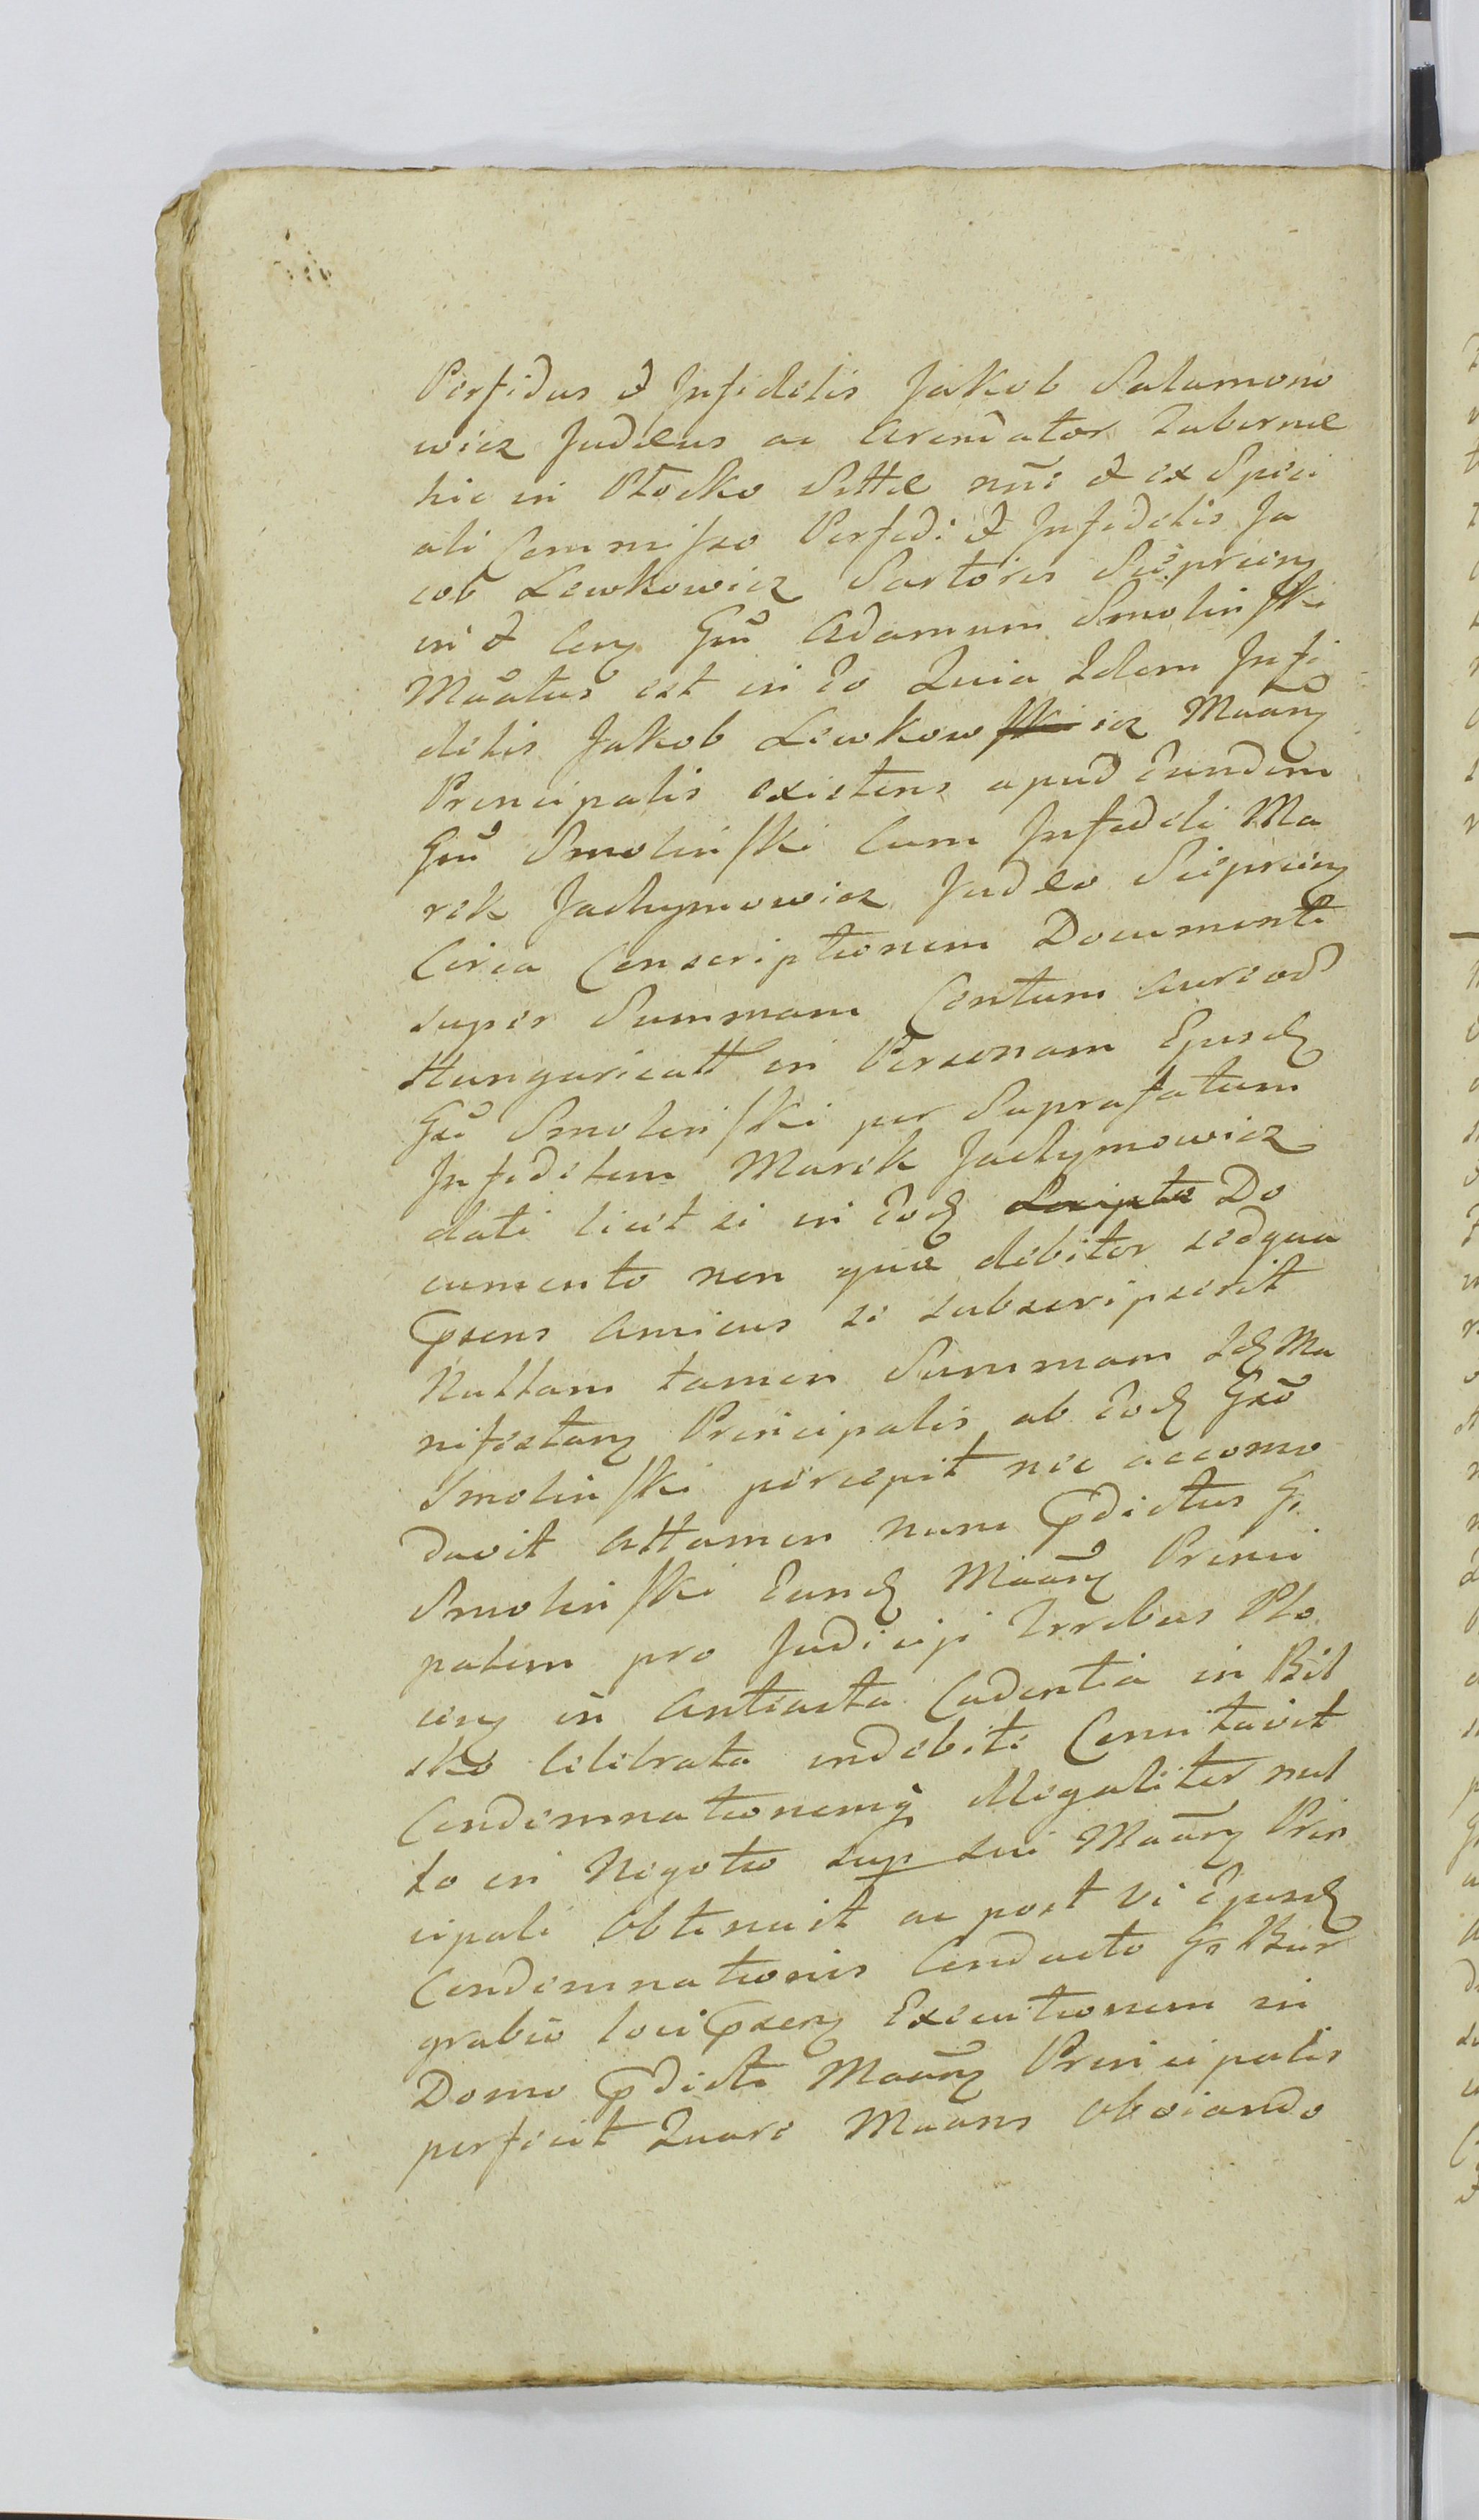 Perfidus & Infidelis Jakob Salamono
wicz Judæus ac Arendator Tabernæ
hic in Płocko Sittæ nnĩe & ex Speci
ali Commisso Perfidi & Infidelis Ja
cob Lewkowicz Sartoris Sieprcen
in & Con Gnũ Adamum Smolinski
Maatus est in Eo Quia Idem Infi
delis Jakob Lewkowicz Maan
Principalis existens apud Eundem
Gnũ Smolinski Cum Infideli Ma
rek Jachymowicz Judæo Sieprcen
Circa Conscriptionem Documenti
super Summam Centum Aureos
Hungaricall in Personam Ejusd
Gsi Smolinski per Suprafatum
Infidelem Marek Jachymowicz
dati licet si in Eod Scripto Do
cumento non qua debitor sed qua
Psens Amicus se subscripserit
Nullam tamen Summam Id Ma
nifestan Principalis ab Eod Gso
Smolinski percepit nec accomo
davit Attamen nunc Pdictus G.
Smolinski Eund Maan Princi
palem pro Judicij Trrlbus Plo
cen in Anteacta Cadentia in Bil
sko Celebrata indebite Concitavit
Condemnationemq Illegaliter nul
lo in Negotio sup sui Maan Prin
cipali Obtenuit ac post Vi Ejusd
Condemnationis Conducto G. Bur
grabio loci Psen Executionem in
Domo Pdicti Maan Principalis
perfecit Quare Maans Obviando